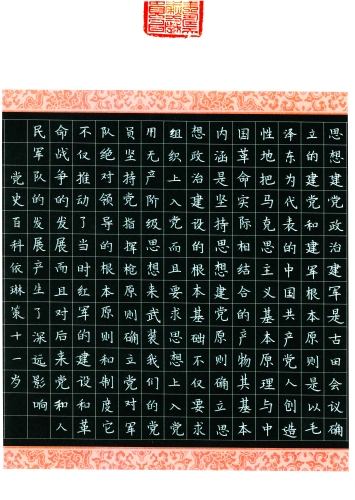 思想建党政治建军是古田会议确
立的建党和建军根本原则是以毛
泽东为代表的中国共产党人创造
性地把马克思主义基本原理与中
国革命实际相结合的产物其基本
内涵是坚持思想建党原则确立思
想政治建设的根本基础不仅要求
组织上入党而且要求思想上入党
用无产阶级思想来武装我们的党
员坚持党指挥枪原则确立党对军
队绝对领导的根本原则和制度它
不仅推动了当时红军的建设和革
命战争的发展而且对后来党和人
民军队的发展产生了深远影响
党史百科依琳策十一岁